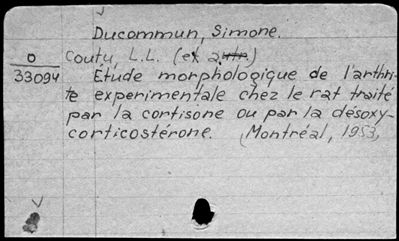 Ducommun, Simone.
O Coutu, L.L. (et 2 autr.)
33094 Étude morphologique de l'arthri-
te experimentale chez le rat traité
par la cortisone ou par la désoxy-
corticostérone. (Montréal, 1953,